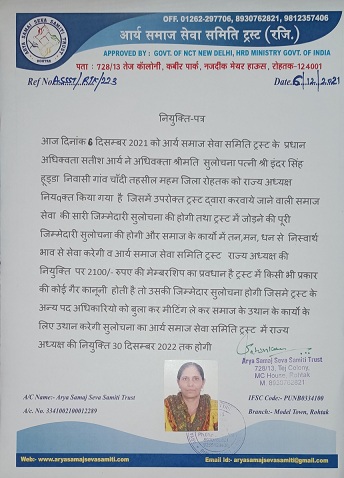 OFF. 01262-297706, 8930762821, 9812357406
आर्य समाज सेवा समिति ट्रस्ट (रजि.)
APPROVED BY : GOVT. OF NCT NEW DELHI, HRD MINISTRY GOVT. OF INDIA
पता : 728/13 तेज कॉलोनी, कबीर पार्क, नजदीक मेयर हाऊस, रोहतक-124001
Ref No. ASST/RTK/223 Date. 6/12/2021
नियुक्ति-पत्र
आज दिनांक 6 दिसम्बर 2021 को आर्य समाज सेवा समिति ट्रस्ट के प्रधान
अधिक्वता सतीश आर्य ने अधिवक्ता श्रीमति सुलोचना पत्नी श्री इंदर सिंह
हूड्डा निवासी गांव चाँदी तहसील महम जिला रोहतक को राज्य अध्यक्ष
नियqक्त किया गया है जिसमें उपरोक्त ट्रस्ट द्वारा करवाये जाने वाली समाज
सेवा की सारी जिम्मेदारी सुलोचना की होगी तथा ट्रस्ट में जोड़ने की पूरी
जिम्मेदारी सुलोचना की होगी और समाज के कार्यो में तन,मन, धन से निस्वार्थ
भाव से सेवा करेगी व आर्य समाज सेवा समिति ट्रस्ट राज्य अध्यक्ष की
नियुक्ति पर 2100/- रुपए की मेम्बरशिप का प्रवधान है ट्रस्ट में किसी भी प्रकार
की कोई गैर कानूनी होती है तो उसकी जिम्मेदार सुलोचना होगी जिसमे ट्रस्ट के
अन्य पद अधिकारियो को बुला कर मीटिंग ले कर समाज के उथान के कार्यो के
लिए उथान करेगी सुलोचना का आर्य समाज सेवा समिति ट्रस्ट में राज्य
अध्यक्ष की नियुक्ति 30 दिसम्बर 2022 तक होगी
Arya Samaj Seva Samiti Trust
728/13, Tej Colony,
MC House, Rohtak
M. 8930762821
A/C Name:- Arya Samaj Seva Samiti Trust IFSC Code:- PUNB0334100
A/c. No. 3341002100012289 Branch:- Model Town, Rohtak
Web:- www.aryasamajsevasamiti.com Email Id:- aryasamajsevasamiti@gmail.com